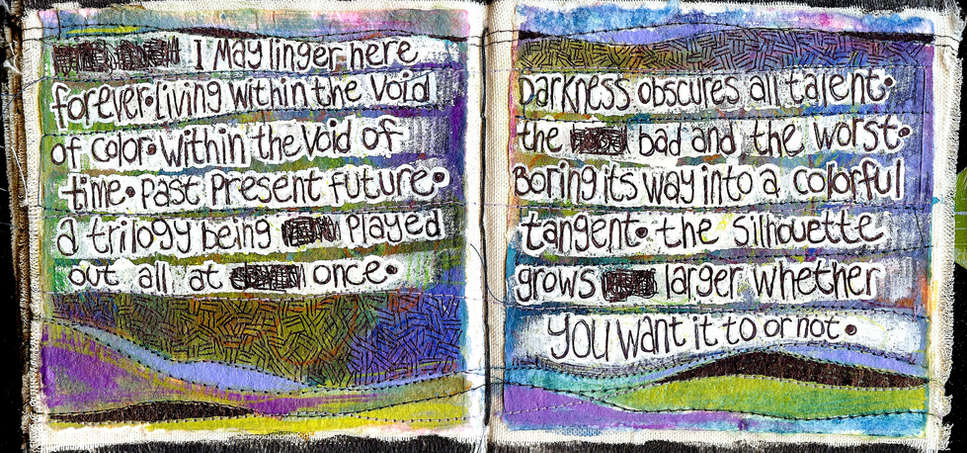 I May linger here
forever • Living within the Void
of color • within the Void of
time • past Present future •
a trilogy being Played
out all at once •
Darkness obscures all talent •
the bad and the worst •
Boring its way into a colorful
tangent • the silhouette
grows larger whether
you want it to or not •